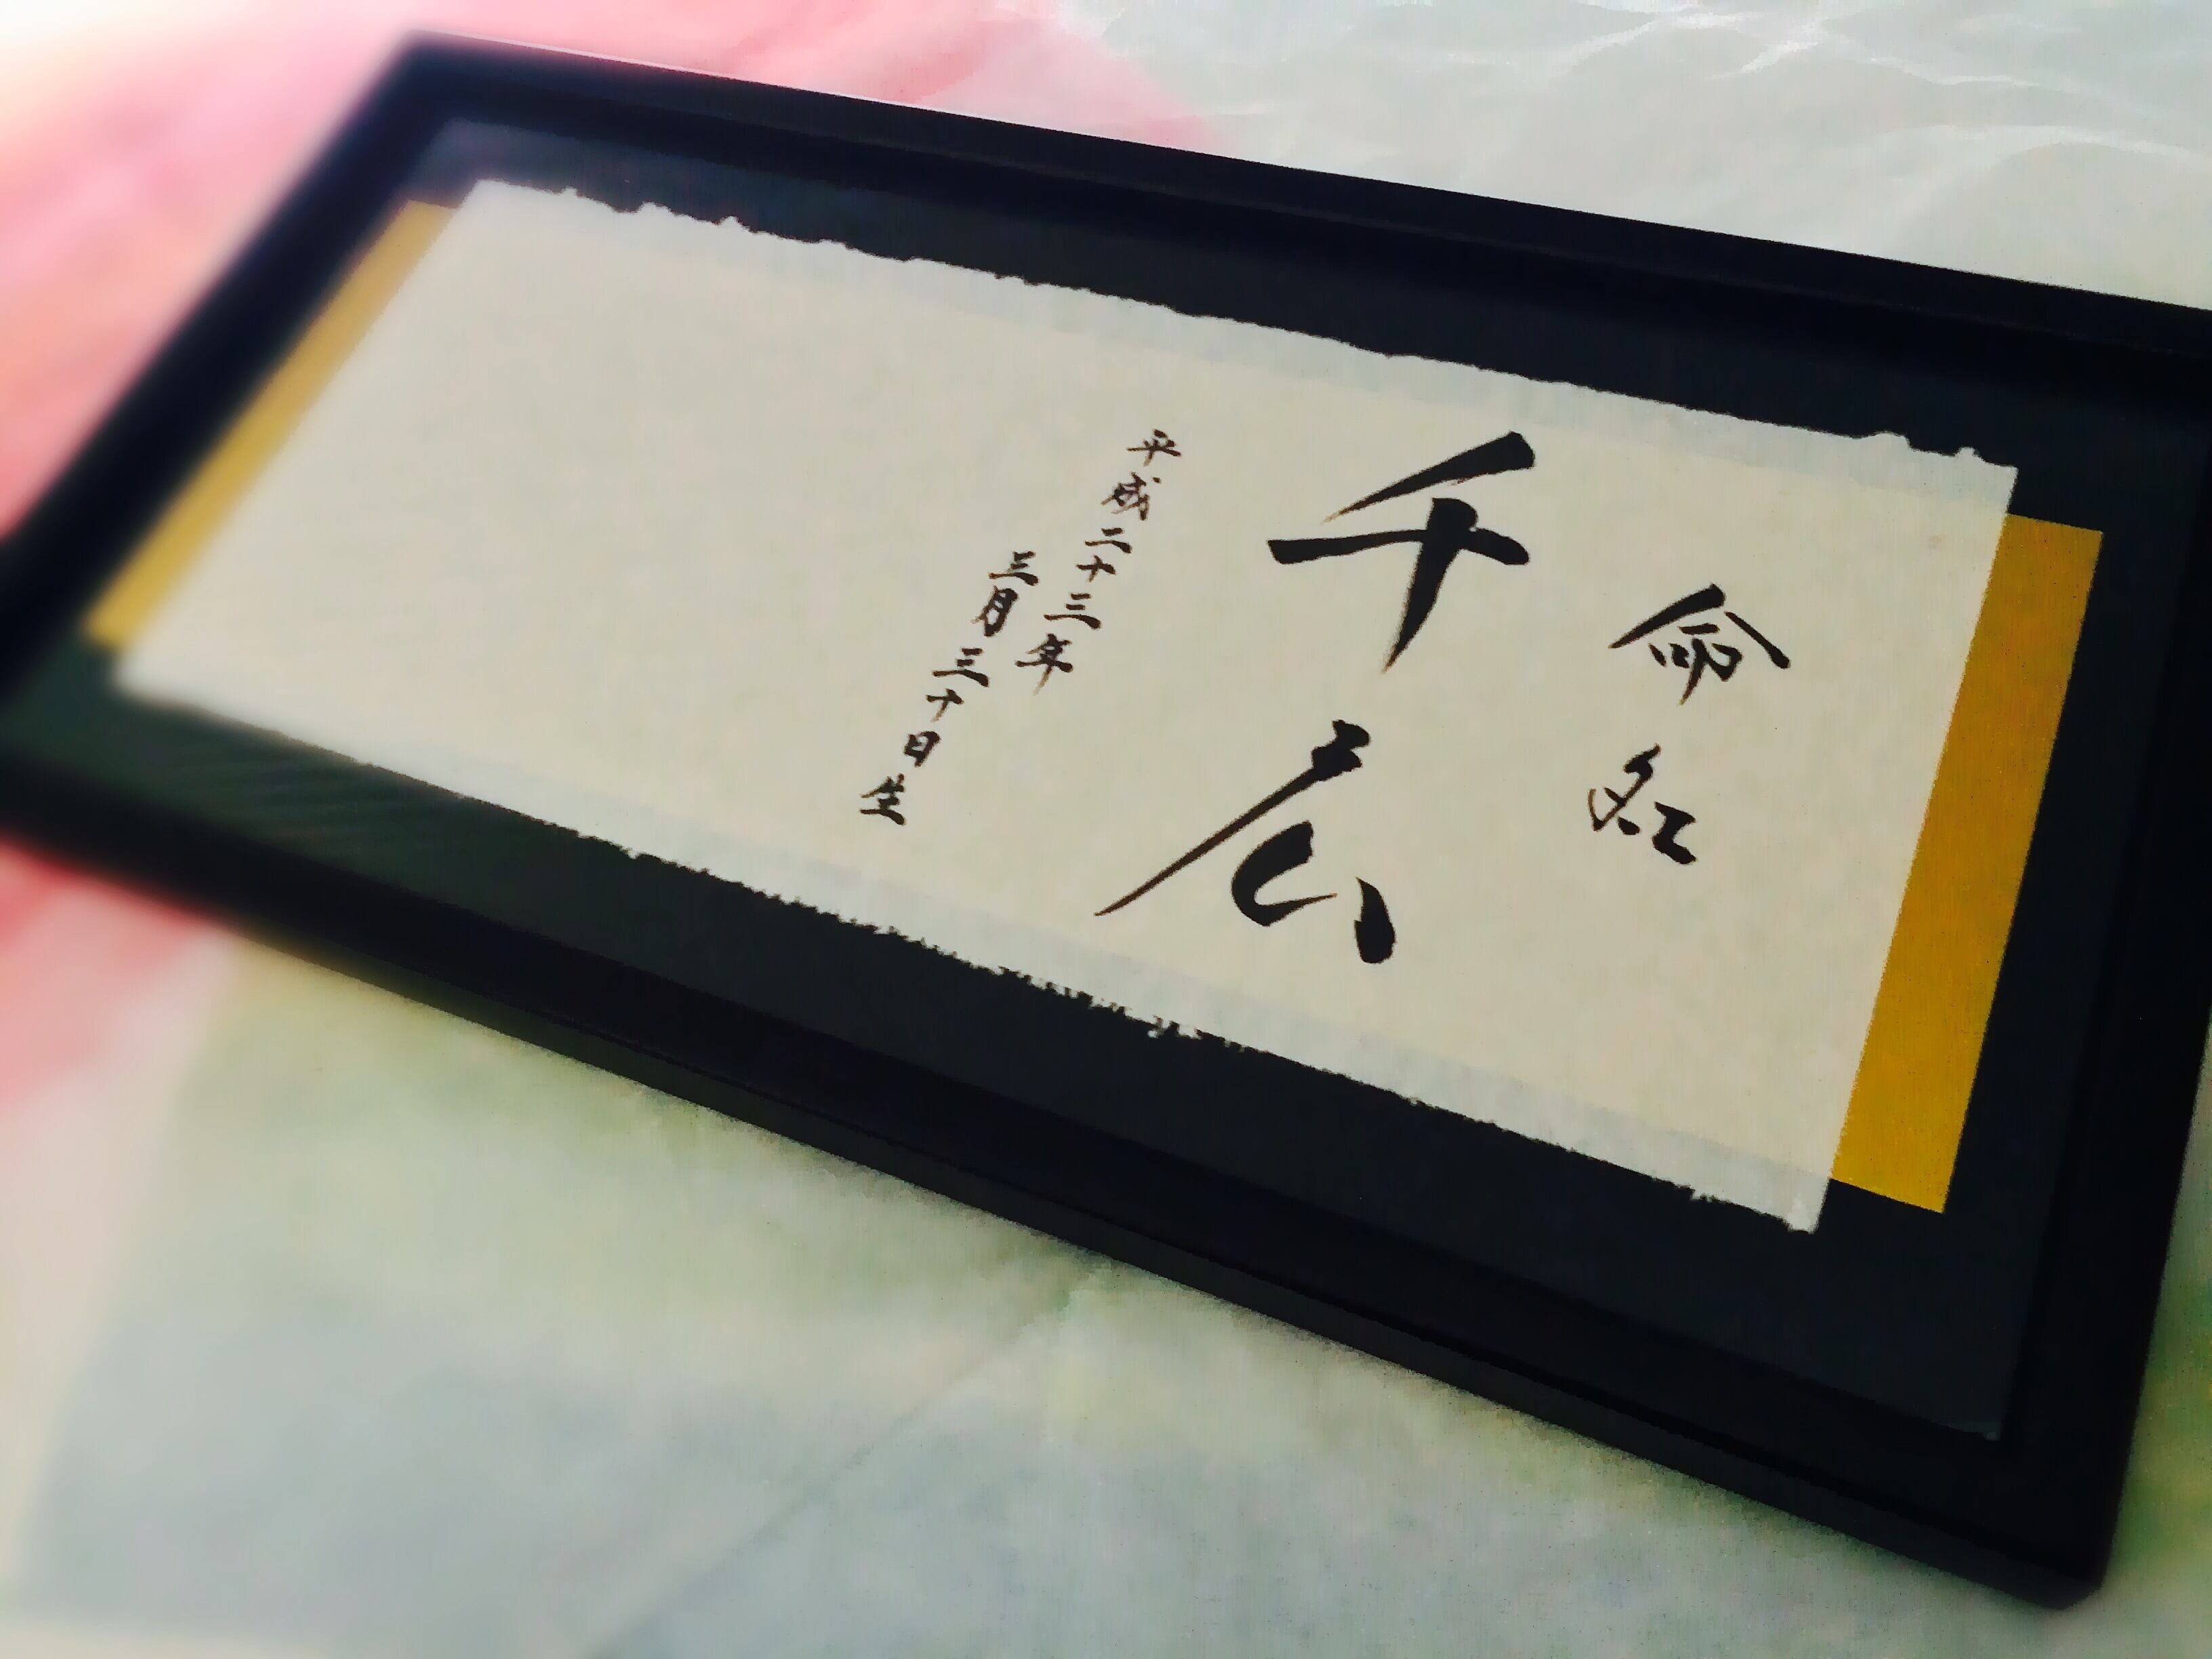 命名
千広
平成二十三年
三月三十日生